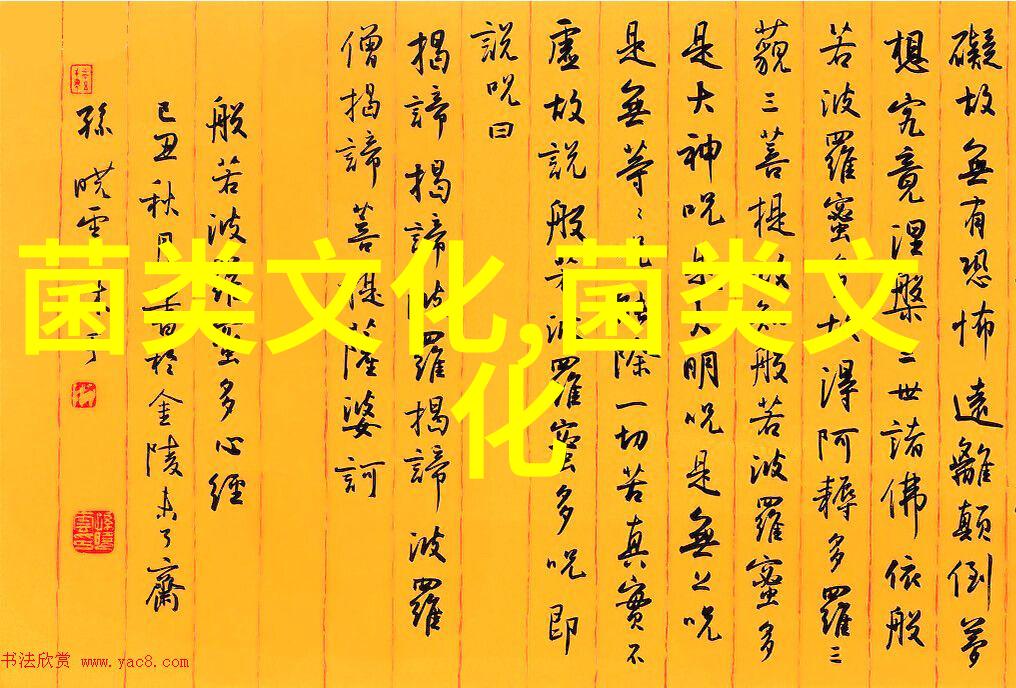 礙故無有恐怖遠離顛倒夢
想究竟涅槃三世諸佛依般
若波羅蜜多故得阿耨多羅三
藐三菩提故知般若波羅蜜多
是大神咒是大明咒是無上咒
是無等〻咒能除一切苦真實不
虛故說般若波羅蜜多咒即
說咒曰
揭諦揭諦波羅揭諦波羅
僧揭諦菩提薩婆訶
般若波羅蜜多心經
己丑秋月書於金陵未了齋
孫曉雲
菌类文化,菌类文
化
书法欣赏 www.yac8.com